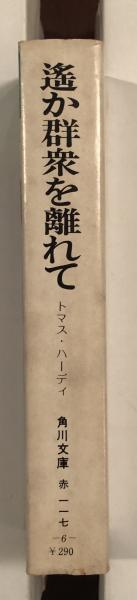 遙か群衆を離れて
トマス・ハーディ
角川文庫
赤 一一七
－6－
￥290